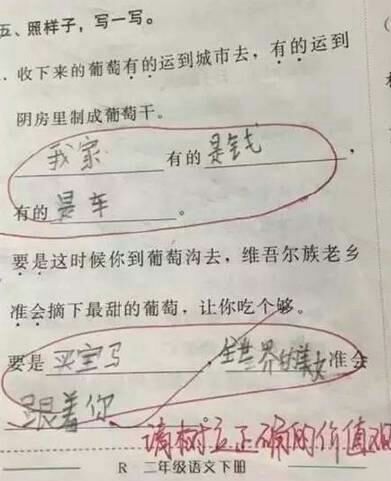 五、照样子，写一写。
. 收下来的葡萄有的运到城市去，有的运到
阴房里制成葡萄干。
我家 有的 是钱 ，
有的 是车 。
要是这时候你到葡萄沟去，维吾尔族老乡
准会摘下最甜的葡萄，让你吃个够。
要是 买宝马 ，全世界的美女准会
跟着你
请树立正确的价值观
R 二年级语文下册